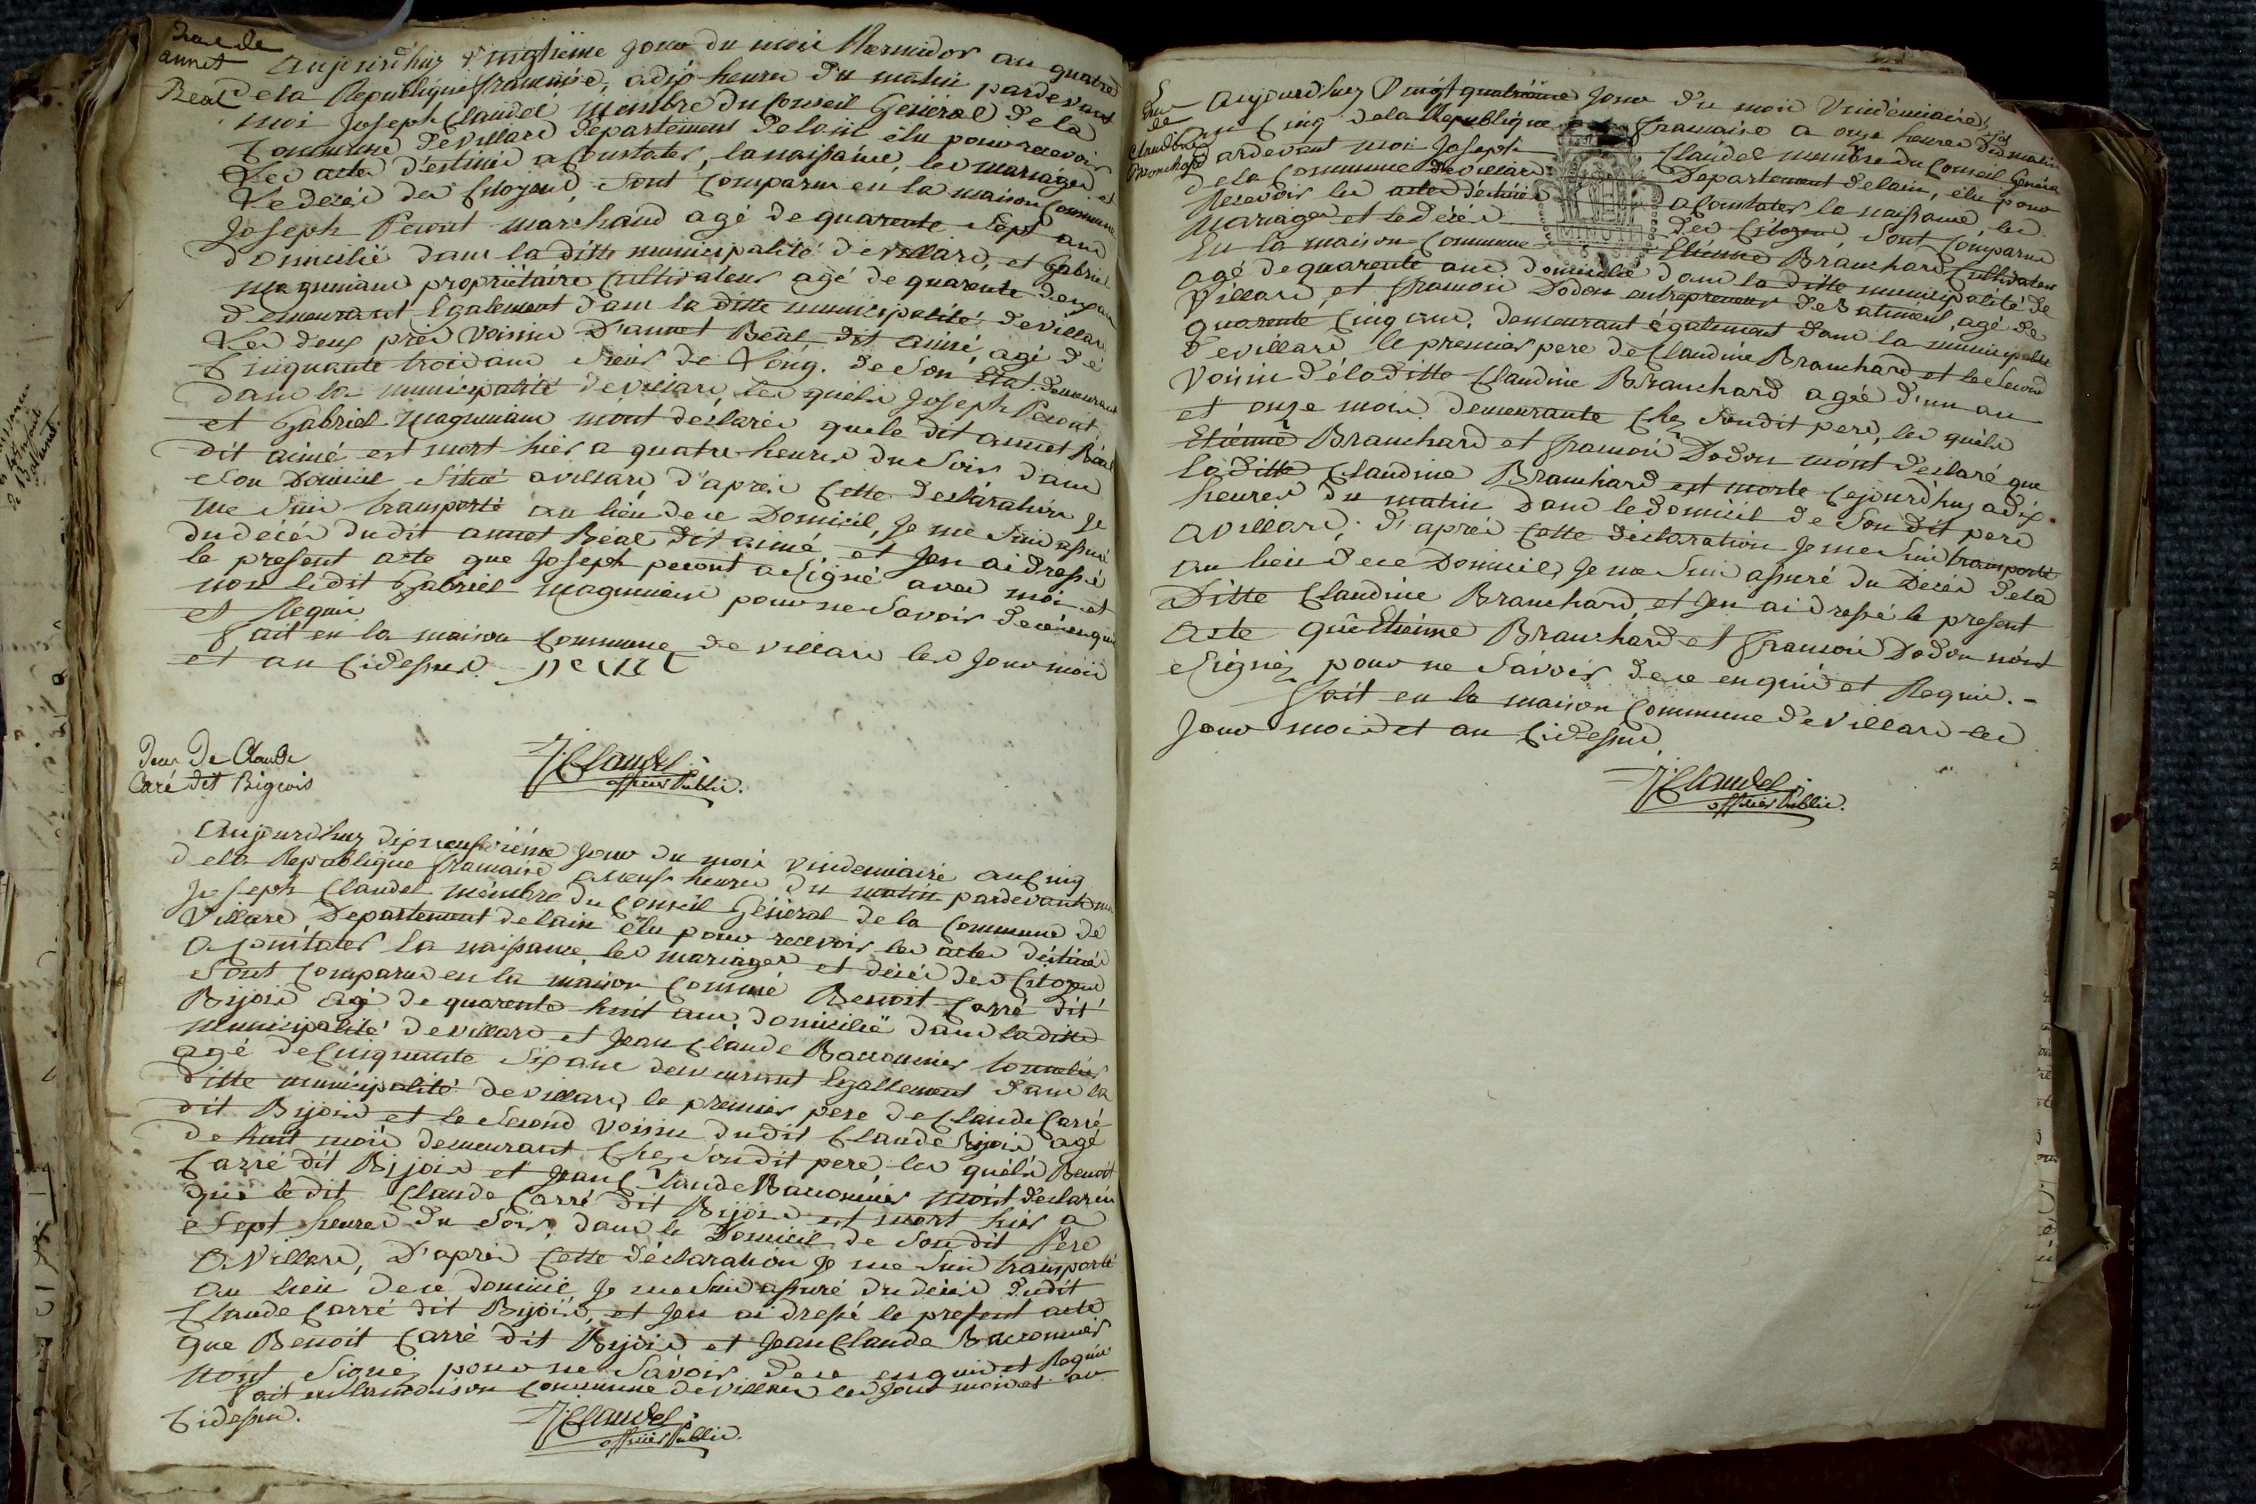 Deces de
annet
Beal
Aujourdhuy vingtiéme jour du mois thermidor an quatre
dela Republique francaise, a dix heures du matin pardevant
moi Joseph Claudel membre du Conseil General de la
Commune de villard département delain élu pour recevoir
Les actes destinés a Constater, la naissance, les mariages et
Le décés des Citoyens, sont Comparus en la maison Commune
Joseph Pecout marchand agé de quarente sept ans
domicilié dans la ditte municipalité devillard, et Gabriel
maguenand propriétaire Cultivateur agé de quarente deux ans
demeurant Egalement dans la ditte municipalité devillard
Les deux près voisins D'annet Béal, dit aimé, agé dé
Cinquante trois ans de son Etat demeurant
dans la municipalité devillard, les quéls Joseph Pecout
et Gabriel maguenand mont declarés que le dit annet Béal
dit aimé est mort hier a quatre heures du soir dans
son Domicil situé avillard d'aprés Cette déclaration je
me suis transporté au lieu de ce Domicil, je me suis assuré
du décés dudit annet Béal dit aimé, et jen ai dressé
le present acte que Joseph pecout a signé avec moi et
non ledit Gabriel maguenand pour ne savoir de ce enquis
et Requis
fait en la maison Commune de villard les jour mois
et an Cidessus. pecout
J: Claudel
officier Public.
Deces De Claude
Caré dit Bigeois
Aujourdhuy dixneuviéme jour du mois vindemiaire an Cinq
dela Republique francaise a neuf heures du matin pardevant moi
Joseph Claudel membre du Conseil Général de la Commune de
Villard Departement de lain élu pour recevoir les actes destinés
a Constater la naissance les mariages et décés des Citoyens
sont Comparus en la maison Comune Benoit Carré dit
Bijois agé de quarente huit ans, domicilié dans la ditte
municipalité de villard et Jean Claude Baccounier tonnelier
agé de Cinquante six ans demeurant Egallement dans la
ditte municipalité devillard, le premier pere de Claude Carré
dit Bijois et le second voisin dudit Claude Bijois agé
de huit mois demeurant Chez sondit pere les quéls Benoit
Carré dit Bijois et Jean Claude Baccounier mont declarés
que le dit Claude Carré dit Bijois est mort hier a
sept heures du soir, dans le Domicil de son dit Pere
a Villard, D'aprés Cette déclaration je me suis transporté
au lieu de ce domicil, je me suis assuré du décés dudit
Claude Carré dit Bijois, et jen ai dressé le present acte
que Benoit Carré dit Bijois et Jean Claude Baccounier
nont signé, pour ne savoir de ce enquis et Requis
fait en la maison Commune de villard les jour mois et an
Cidessus.
J: Claudel
officier Public.
de
Claudine
Branchard
Aujourdhuy Vingt quatriéme jour du mois Vindémiaire,
an Cinq dela Republique francaise a onze heures du matin
Pardevant moi Joseph Claudel membre du Conseil Général
de la Commune de villard Departement delain, élu pour
Recevoir les actes déstinés a Constater la naissance, les
Mariages et le décés des Citoyens sont Comparus
En la maison Commune Etienne Branchard Cultivateur
agé de quarente ans domicilié dans la ditte municipalité de
Villard, et francois Dodon entrepreneur de Batiment, agé de
quarente Cinq ans, demeurant également dans la municipalité
de villard le premier pere de Claudine Branchard et le second
voisin dé la ditte Claudine Branchard agée d'un an
et onze mois demeurante Chez sondit pere, les quéls
Etienne Branchard et francois Dodon mont déclaré que
la ditte Claudine Branchard est morte Cejourd'huy a dix
heures du matin dans ledomicil de son dit pere
a Villard, d'aprés Cette déclaration je me suis transporté
au lieu de ce Domicil, je me suis assuré du Décés de la
ditte Claudine Branchard, et jen ai dressé le present
acte que Etienne Branchard et francois Dodon nont
signéz pour ne savoir de ce enquis et Requis. -
fait en la maison Commune de Villard les
Jour mois et an Cidessus
J: Claudel
officier Public.